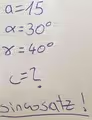 a=15
α=30°
γ=40°
c=?
Sinussatz!